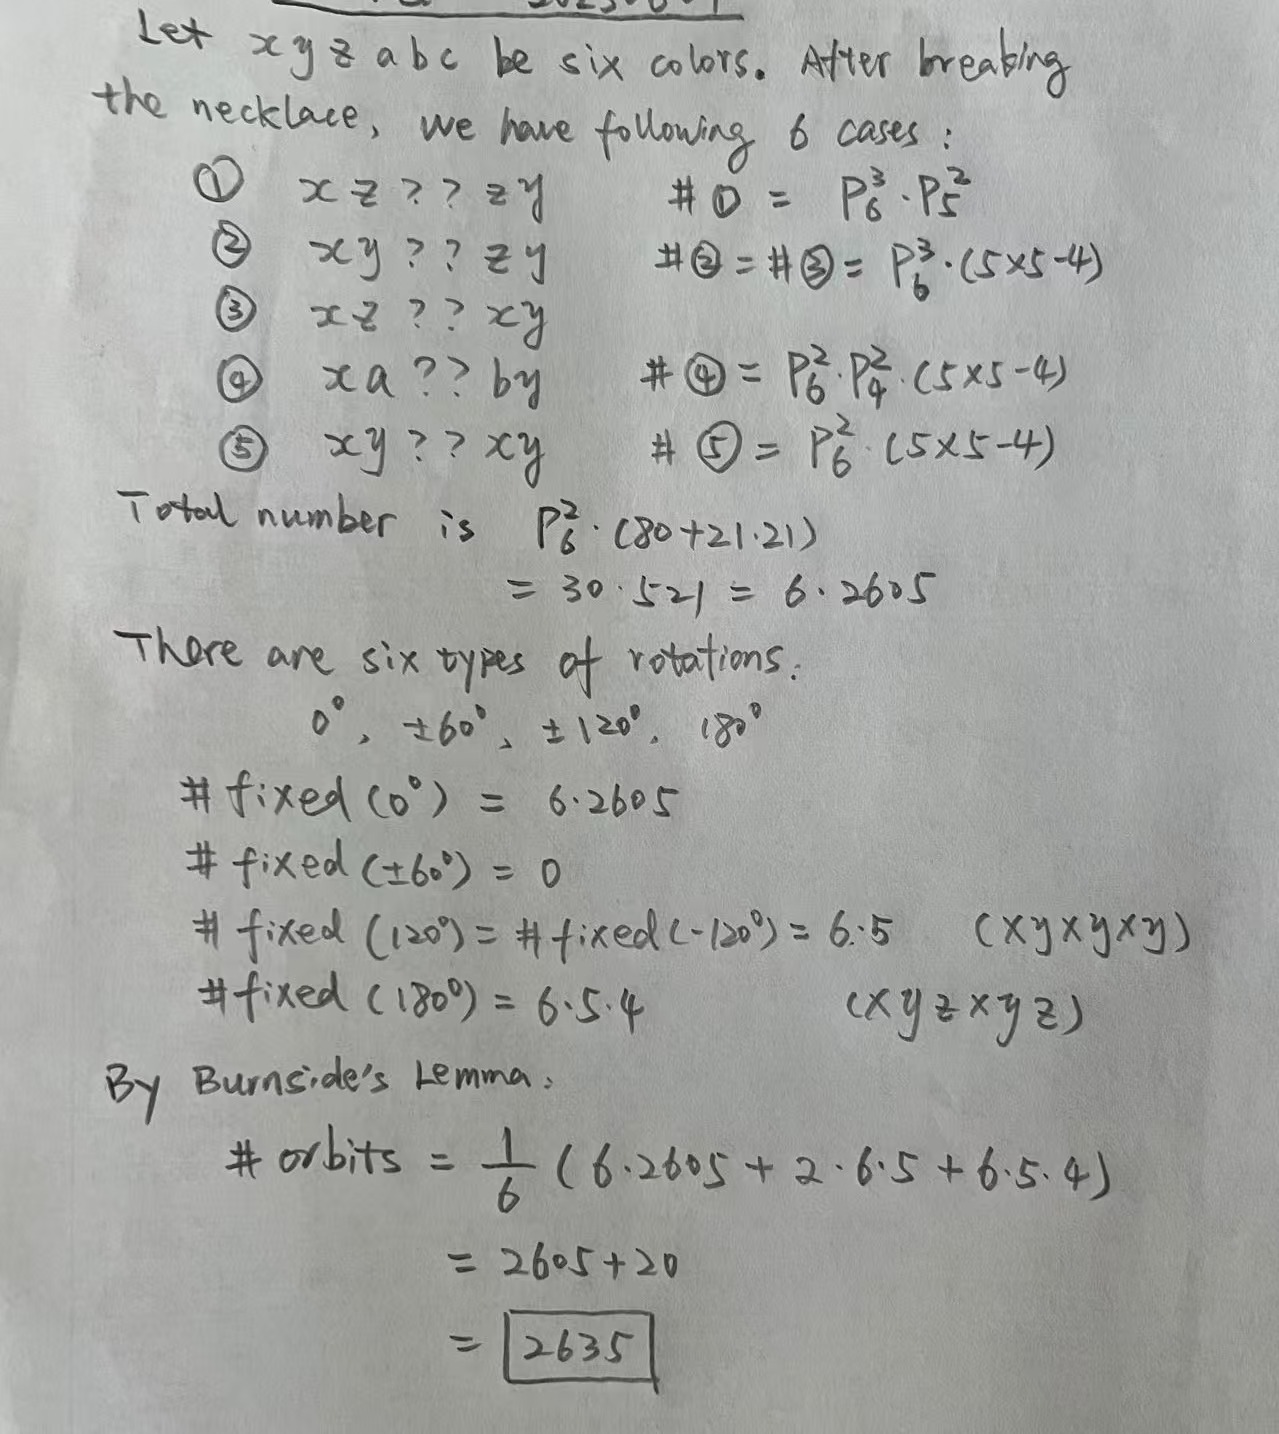 Let x y z a b c be six colors. After breaking
the necklace, we have following 6 cases:
① x z ? ? z y #① = P₆³·P₅²
② x y ? ? z y #② = #③ = P₆³·(5×5-4)
③ x z ? ? x y
④ x a ? ? b y #④ = P₆²·P₄²·(5×5-4)
⑤ x y ? ? x y #⑤ = P₆²·(5×5-4)
Total number is P₆²·(80+21·21)
= 30·521 = 6·2605
There are six types of rotations.
0°, ±60°, ±120°, 180°
#fixed(0°) = 6·2605
#fixed(±60°) = 0
#fixed(120°) = #fixed(-120°) = 6·5 (xyxyxy)
#fixed(180°) = 6·5·4 (xyzxyz)
By Burnside's Lemma,
#orbits = 1/6 (6·2605 + 2·6·5 + 6·5·4)
= 2605+20
= 2635